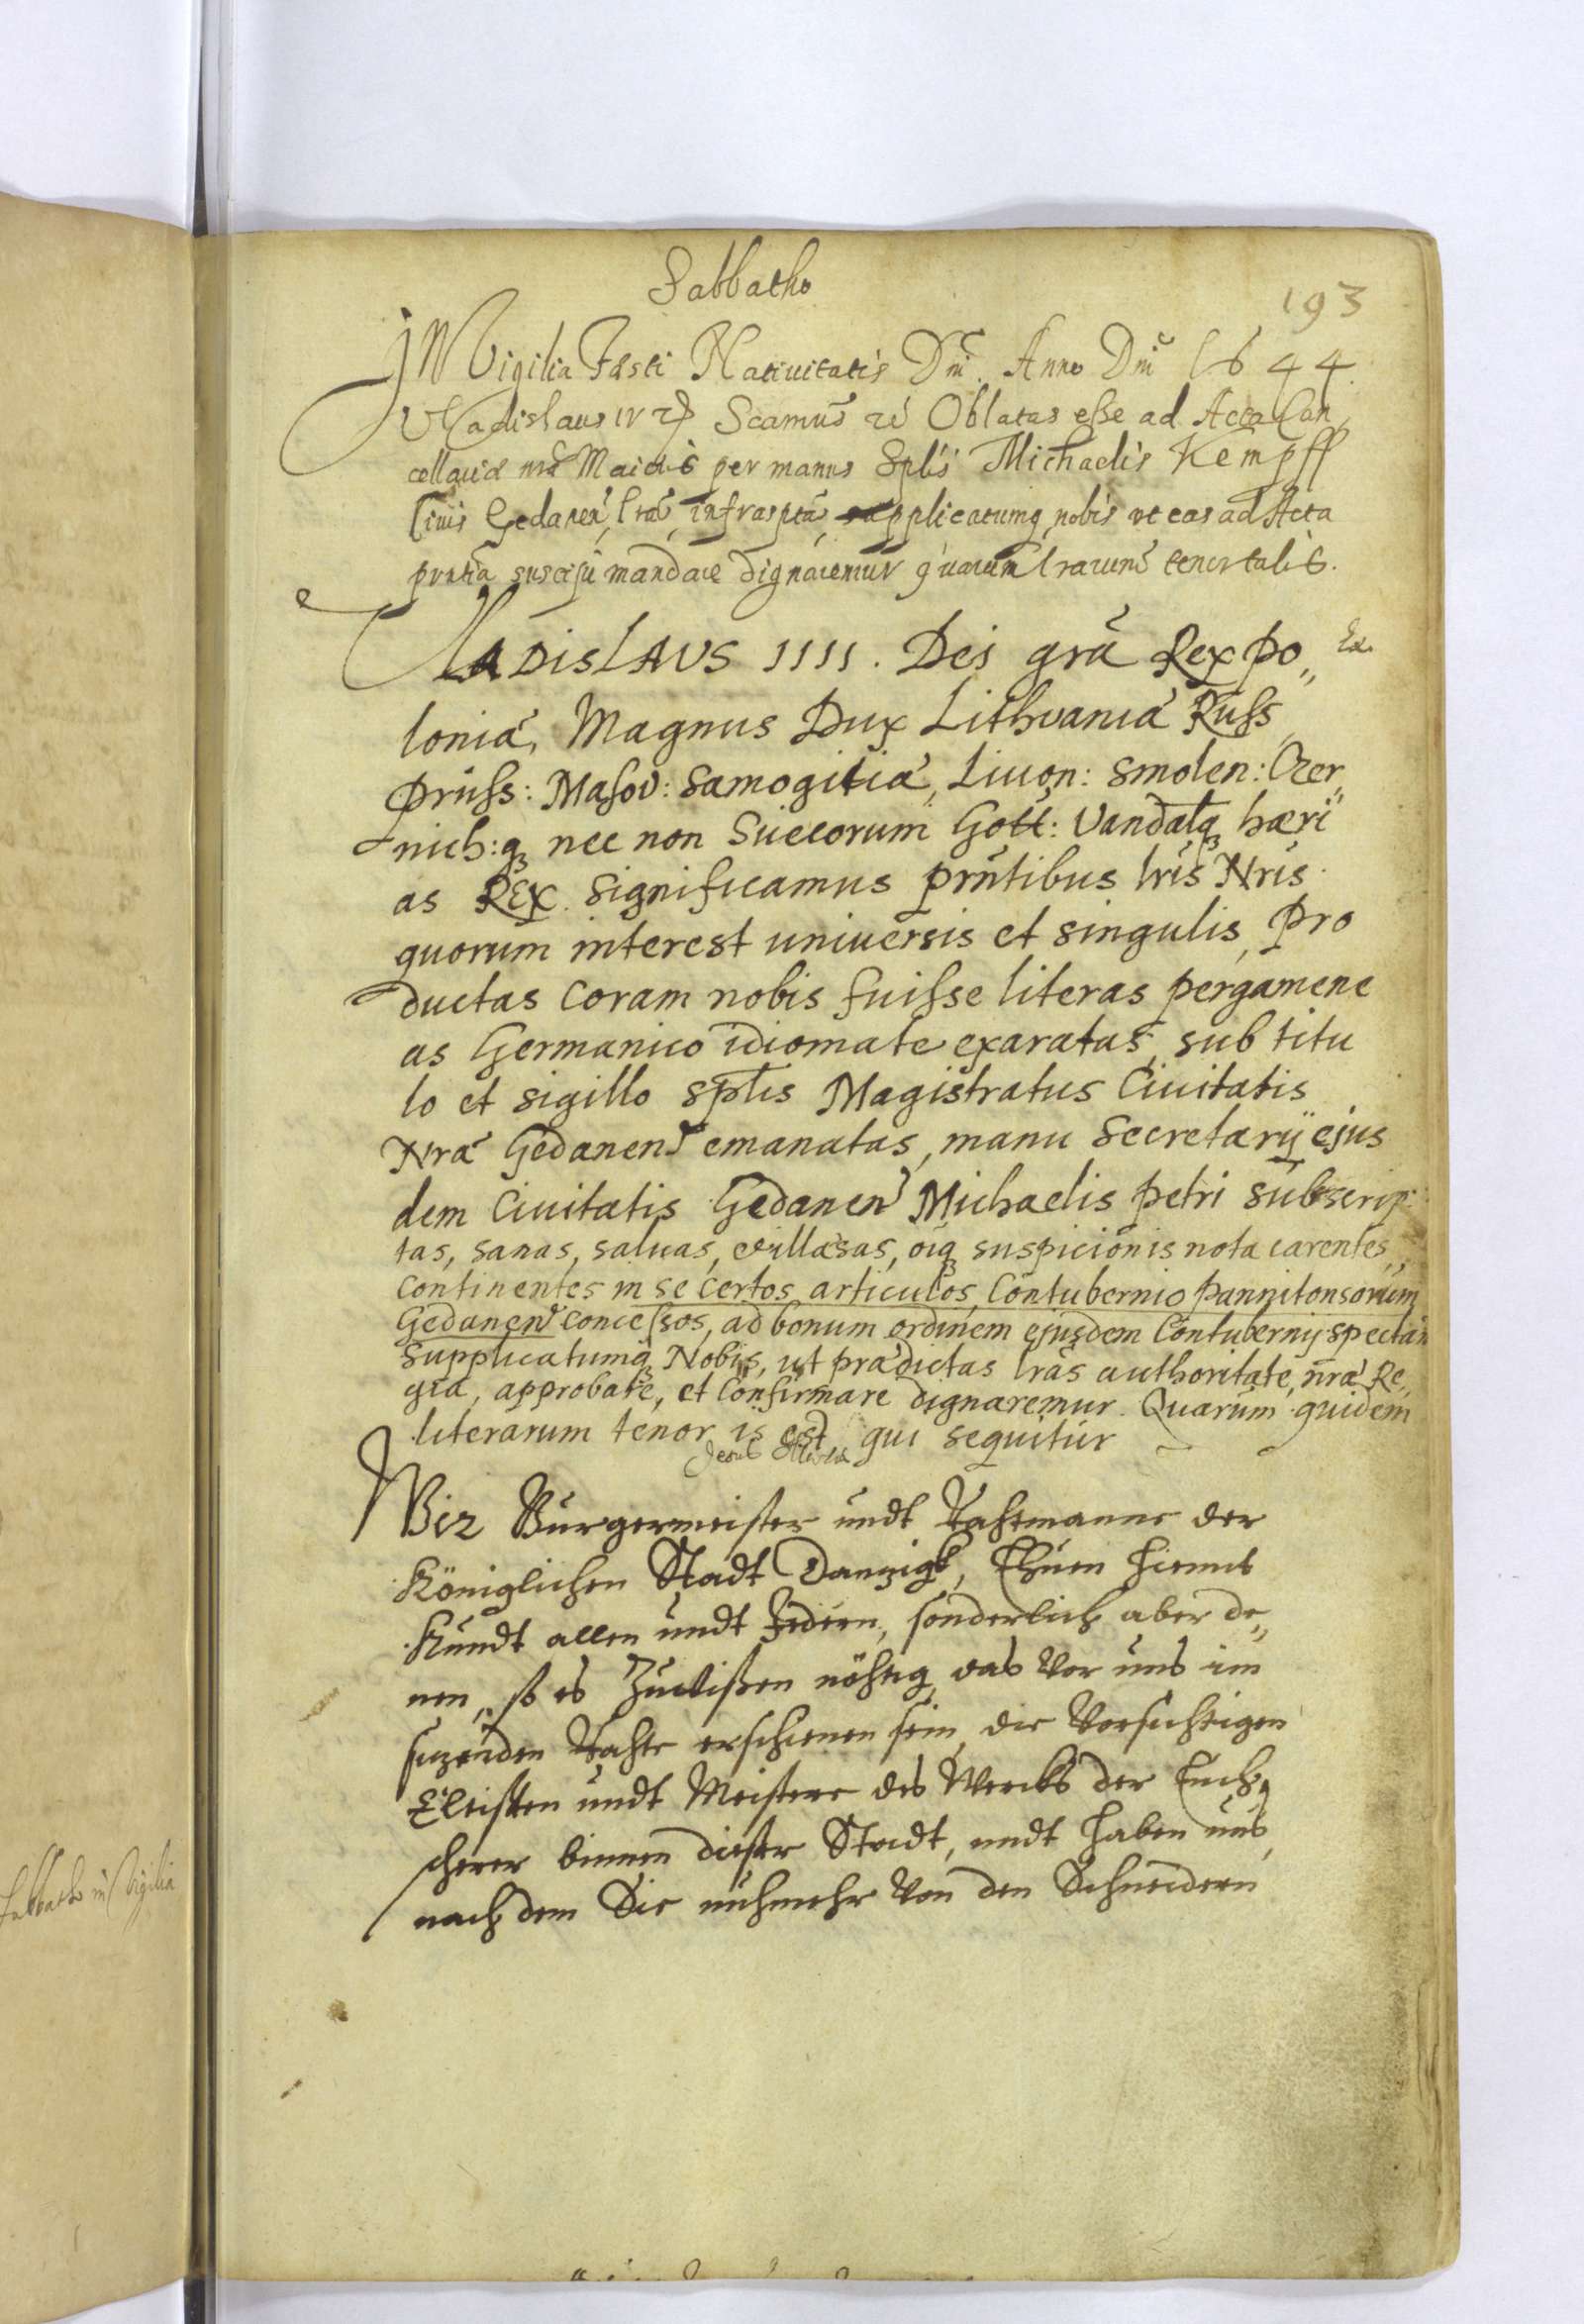 Sabbatho
193
In Vigilia Festi Natiuitatis Dni Anno Dni 1644.
Vladislaus IV Oblatas esse ad Acta Can
cellariæ Maioris per manus Splis Michaelis Kempff
Ciuis Gedanen, lras infrasptas supplicatumq nobis ut eas ad Acta
pntia suscipi mandare dignaremur quarum lrarum tenor talis.
VLADISLAUS IIII. Dei gra Rex Po„
loniæ, Magnus Dux Lithuaniæ Russ
Pruss: Masov: Samogitiæ, Liuon: Smolen: Czer„
nich:q nec non Suecorum Gott: Vandalq hæri
as Rex. Significamus pnntibus lris Nris
quorum interest uniuersis et singulis, Pro
ductas coram nobis fuisse literas pergamene
as Germanico idiomate exaratas, sub titu
lo et sigillo splis Magistratus Ciuitatis
Nræ Gedanen emanatas, manu Secretarij ejus
dem Ciuitatis Gedanen Michaelis Petri subscrip:
tas, sanas, saluas, et illæsas, oiq suspicionis nota carentes,
continentes in se certos articulos, Contubernio Pannitonsorum
Gedanen concessos, ad bonum ordinem ejusdem Contubernij spectan
Supplicatumq Nobis, ut prædictas lras authoritate nra Re„
gia, approbare, et Confirmare dignaremur. Quarum quidem
literarum tenor is est qui sequitur
Wir Burgermeister undt Rahtmanne der
Königlichen Stadt Dantzigk, Thuen hiemit
Kundt allen undt Jedern, sonderlich aber de„
nen, so es Zuwißen nöhtig, das Vor uns im
sitzenden Rahte erschienen sein, die Vorsichtigen
Eltisten undt Meistere des Wercks der Tuch„
scherer binnen dieser Stadt, undt haben uns,
nach dem Sie nuhmehr Von den Schneidern
Sabbatho in Vigilia